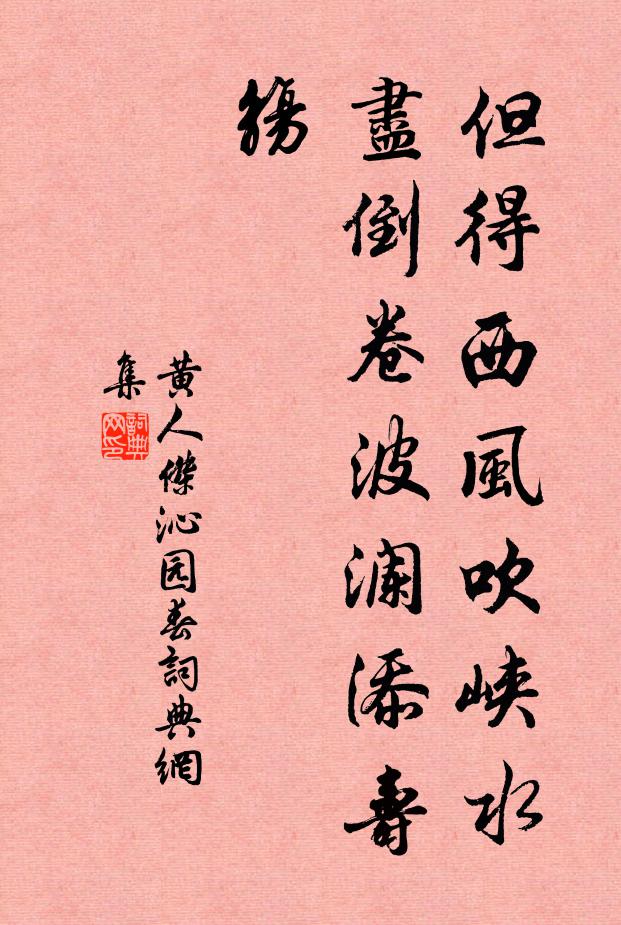 但得西風吹峽水
盡倒卷波瀾添壽
觴
黄人傑沁园春詞典網
集
詞典
网印